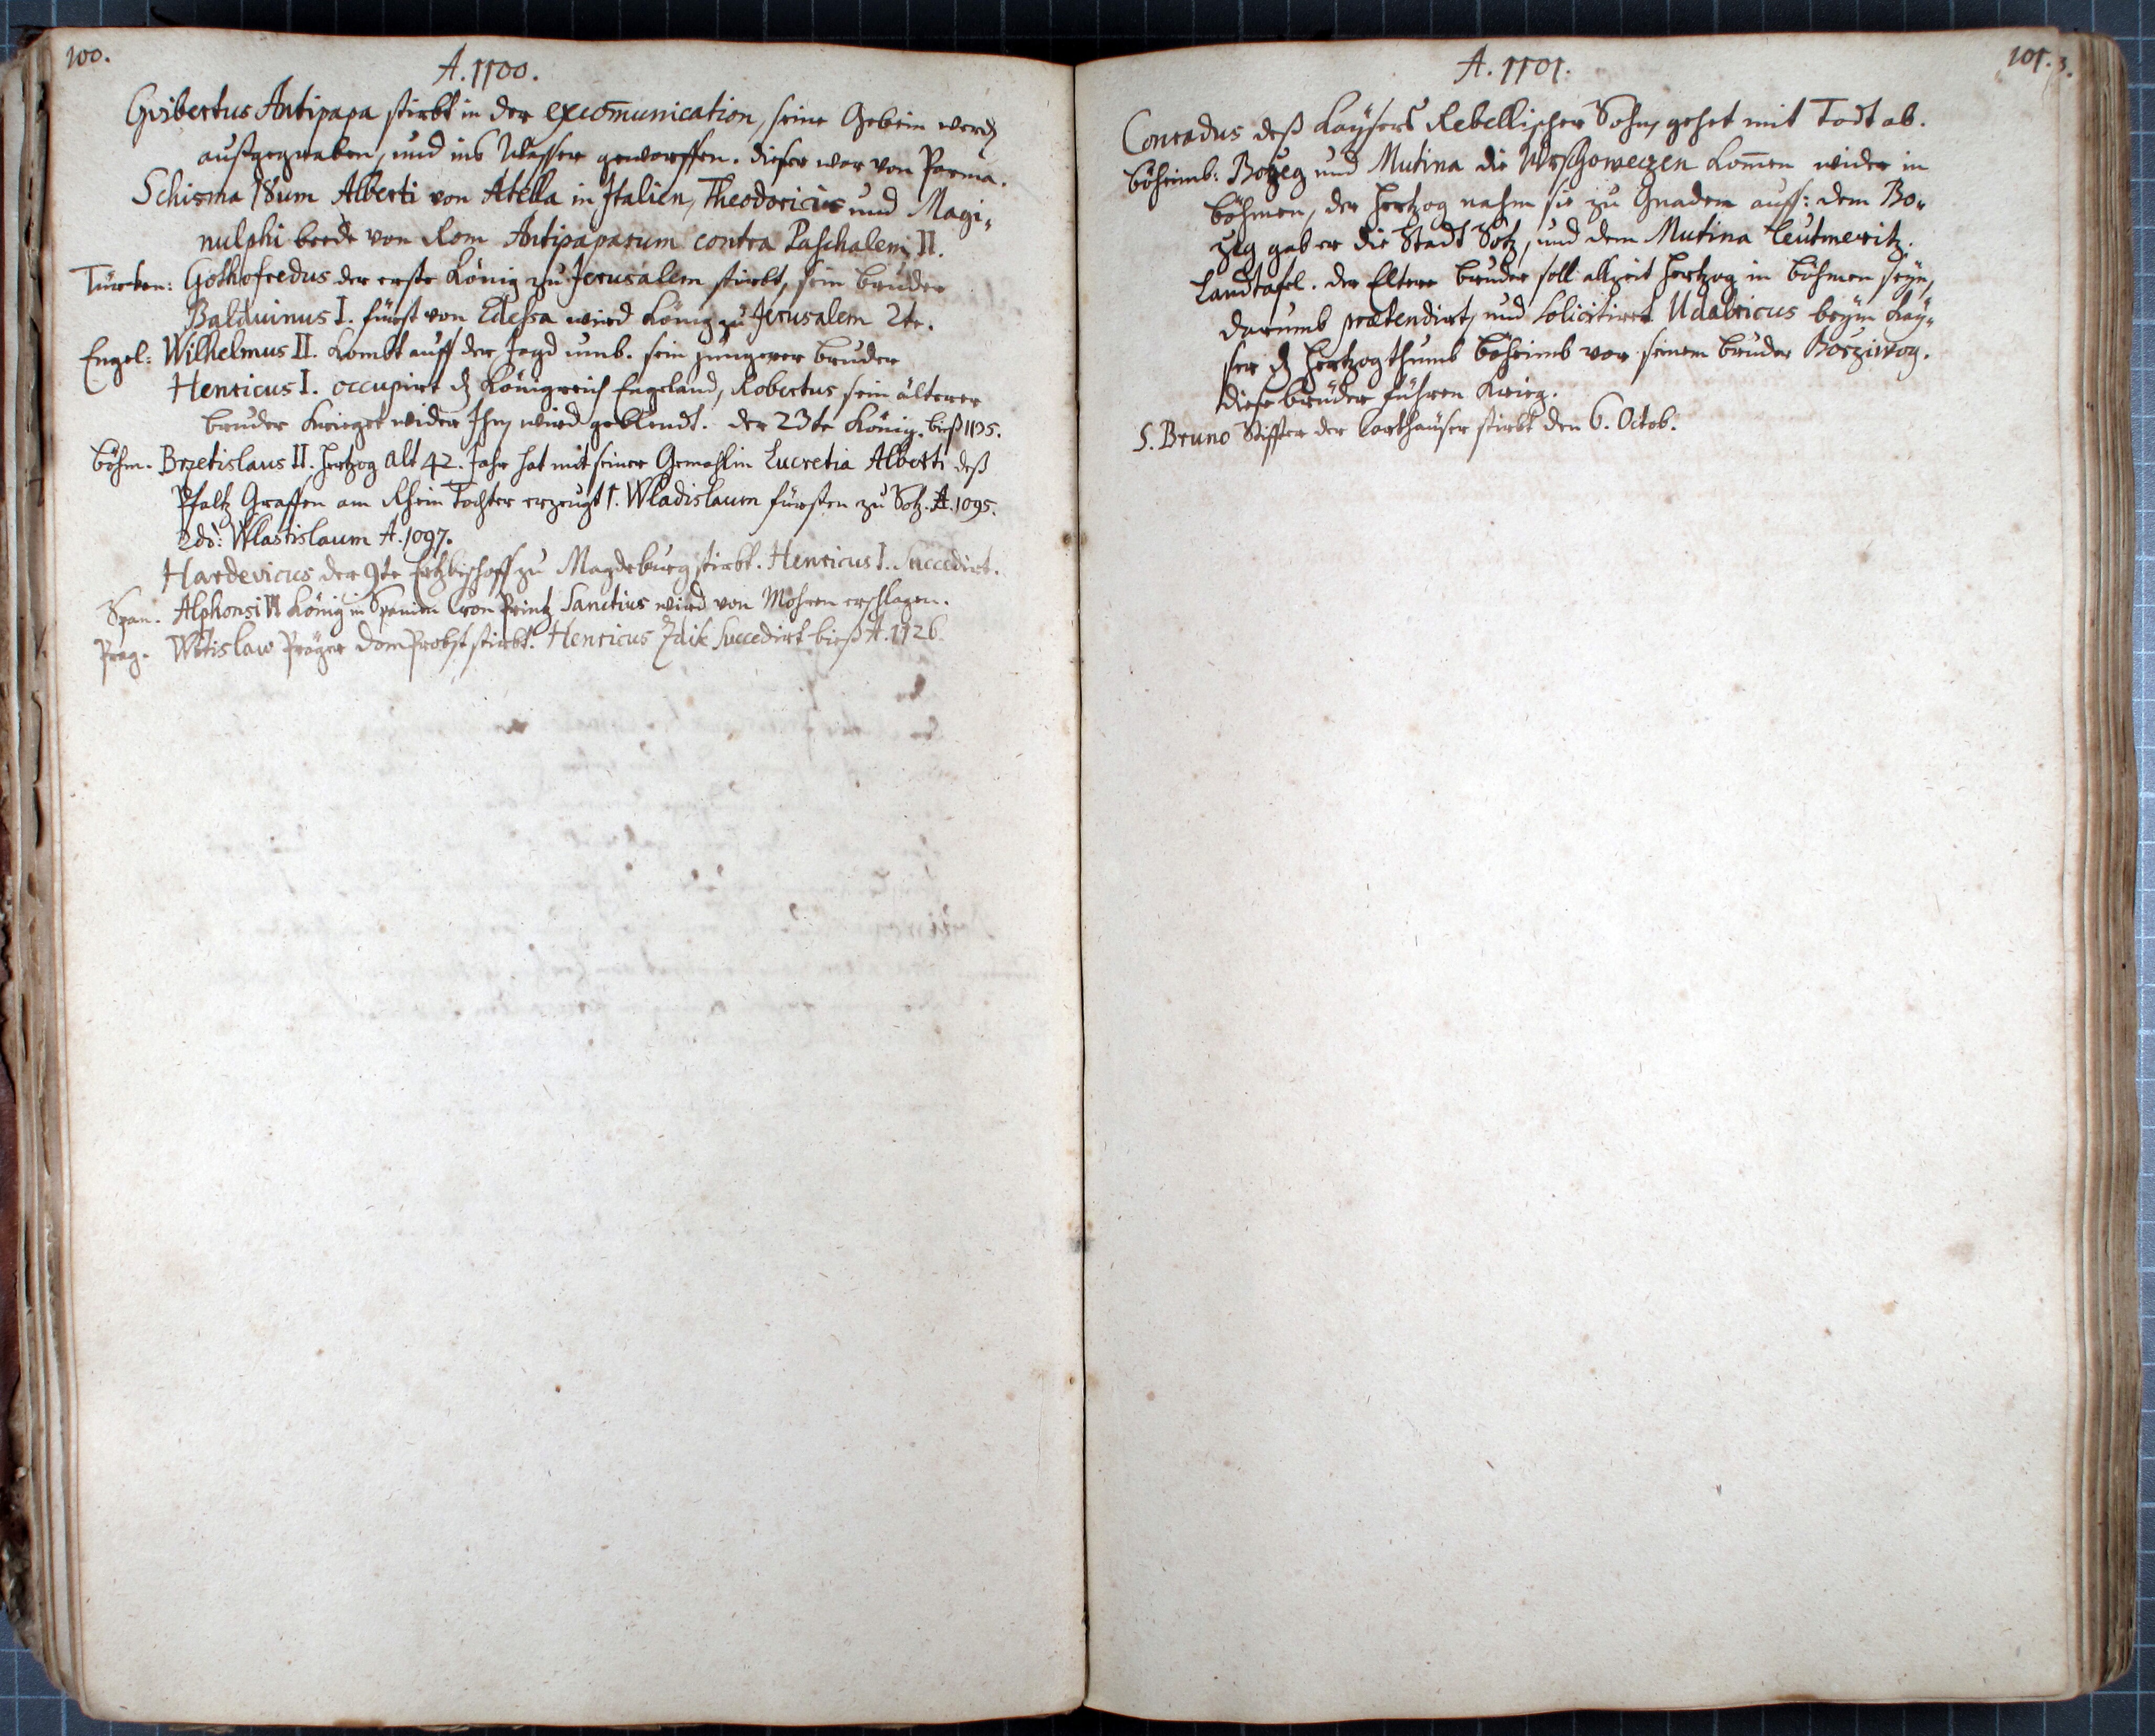 100.
A. 1100.
Gvibertus Antipapa stirbt in der excom̄unication, seine Gebein werdē
außgegraben, und ins Wasser geworffen. dieser war von Parma.
Schisma 18um Alberti von Atella in Italien, Theodoricus und Magi-
nulphi beede von Rom Antipaparum contra Paschalem II.
Türcken: Gothofredus der erste König zu Jerusalem stirbt, sein bruder
Balduinus I. fürst von Edessa wird König zu Jerusalem 2te.
Engel: Wilhelmus II. Kombt auff der Jagd umb. sein jüngerer bruder
Henricus I. occupirt dz Königreich Engeland, Robertus sein älterer
bruder Krieget wider Ihn, wird geblendt. der 23te König. bieß 1135.
böhm. Brzetislaus II. Hertzog alt 42. Jahr hat mit seiner Gemahlin Lucretia Alberti deß
Pfaltz Graffen am Rhein Tochter erzeugt 1. Wladislaum fürsten zu Sotz. A. 1095.
2dò: Wlastislaum A. 1097.
Hardevicus der 9te Ertzbischoff zu Magdeburg stirbt. Henricus I. Succedirt.
Span. Alphonsi VI König in Spanien Cron Printz Sanctius wird von Mohren erschlagen.
Prag. Wtislaw Präger Dom Probst stirbt. Henricus Zdik Succedirt bieß A. 1126.
101. 3.
A. 1101.
Conradus deß Kaÿsers Rebellischer Sohn, gehet mit Todt ab.
böheimb: Bozeg und Mutina die Wrschowezen Kom̄en wider in
böhmen, der Hertzog nahm sie zu Gnaden auff: dem Bo-
zeg gab er die Stadt Sotz, und dem Mutina Leutmeritz.
Landtafel. der Eltere bruder soll allzeit Hertzog in böhmen seÿn,
darumb prætendirt, und Solicitirt Udalricus beÿm Kaÿ-
ser dz Hertzogthumb böheimb vor seinem bruder Borziwog.
diese brüder führen Krieg.
S. Bruno Stiffter der Carthäuser stirbt den 6. Octob.